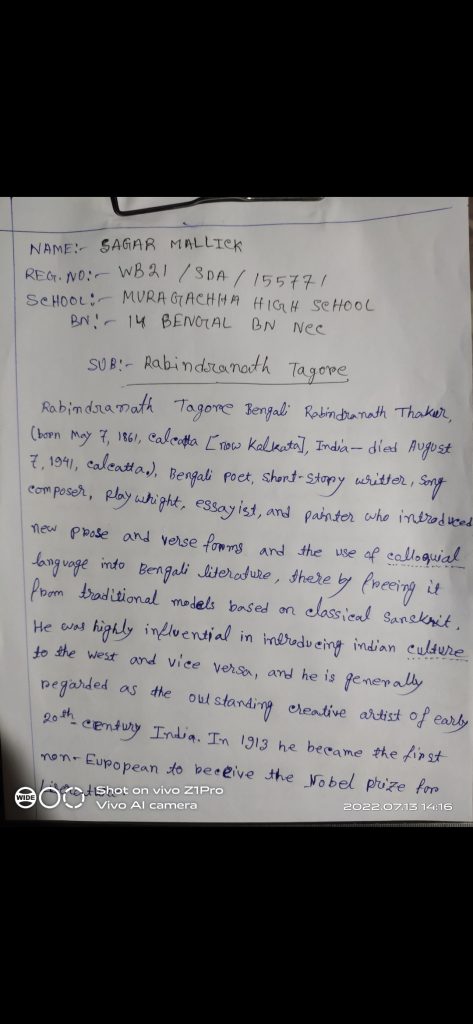 NAME:- SAGAR MALLICK
REG. NO:- WB21 / SDA / 155771
SCHOOL:- MURAGACHHA HIGH SCHOOL
BN:- 14 BENGAL BN NCC
SUB:- Rabindranath Tagore
Rabindranath Tagore Bengali Rabindranath Thakur,
(born May 7, 1861, Calcatta [now Kolkata], India— died August
7, 1941, calcatta.), Bengali poet, short-story writter, song
composer, playwright, essayist, and painter who introduced
new prose and verse forms and the use of calloquial
language into Bengali literature, there by freeing it
from traditional models based on classical sanskrit.
He was highly influential in introducing indian culture
to the west and vice versa, and he is generally
regarded as the outstanding creative artist of early
20th- century India. In 1913 he became the first
non-European to receive the Nobel prize for
WIDE
Shot on vivo Z1Pro
Vivo AI camera
2022.07.13 14:16